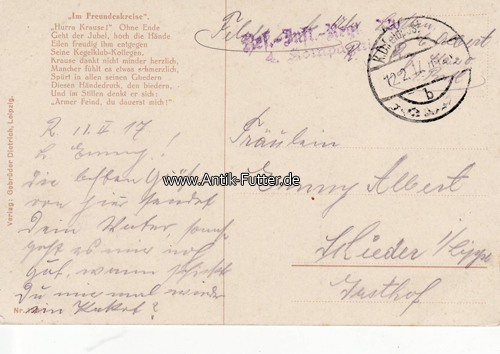 „Im Freundeskreise“.
„Hurra Krause!“ Ohne Ende
Geht der Jubel, hoch die Hände
Eilen freudig ihm entgegen
Seine Kegelklub-Kollegen.
Krause dankt nicht minder herzlich,
Mancher fühlt es etwas schmerzlich,
Spürt in allen seinen Gliedern
Diesen Händedruck, den biedern,
Und im Stillen denkt er sich:
„Armer Feind, du dauerst mich!“
Verlag: Gebrüder Dietrich, Leipzig.
Nr.
Res.-Inft.-Reg.
Albert
b
11. V 17
L. Emmy!
Die besten Grüße
von hier sendet
Dein Vater, sonst
geht es mir noch
gut, wann schickst
Du mir mal wieder
ein Paket?
www.Antik-Futter.de
Fräulein
Emmy Albert
Schieder i/Lippe
Gasthof